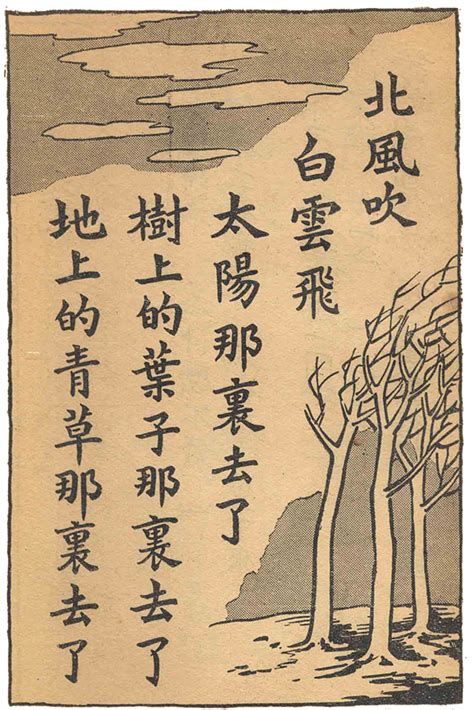 北風吹
白雲飛
太陽那裏去了
樹上的葉子那裏去了
地上的青草那裏去了